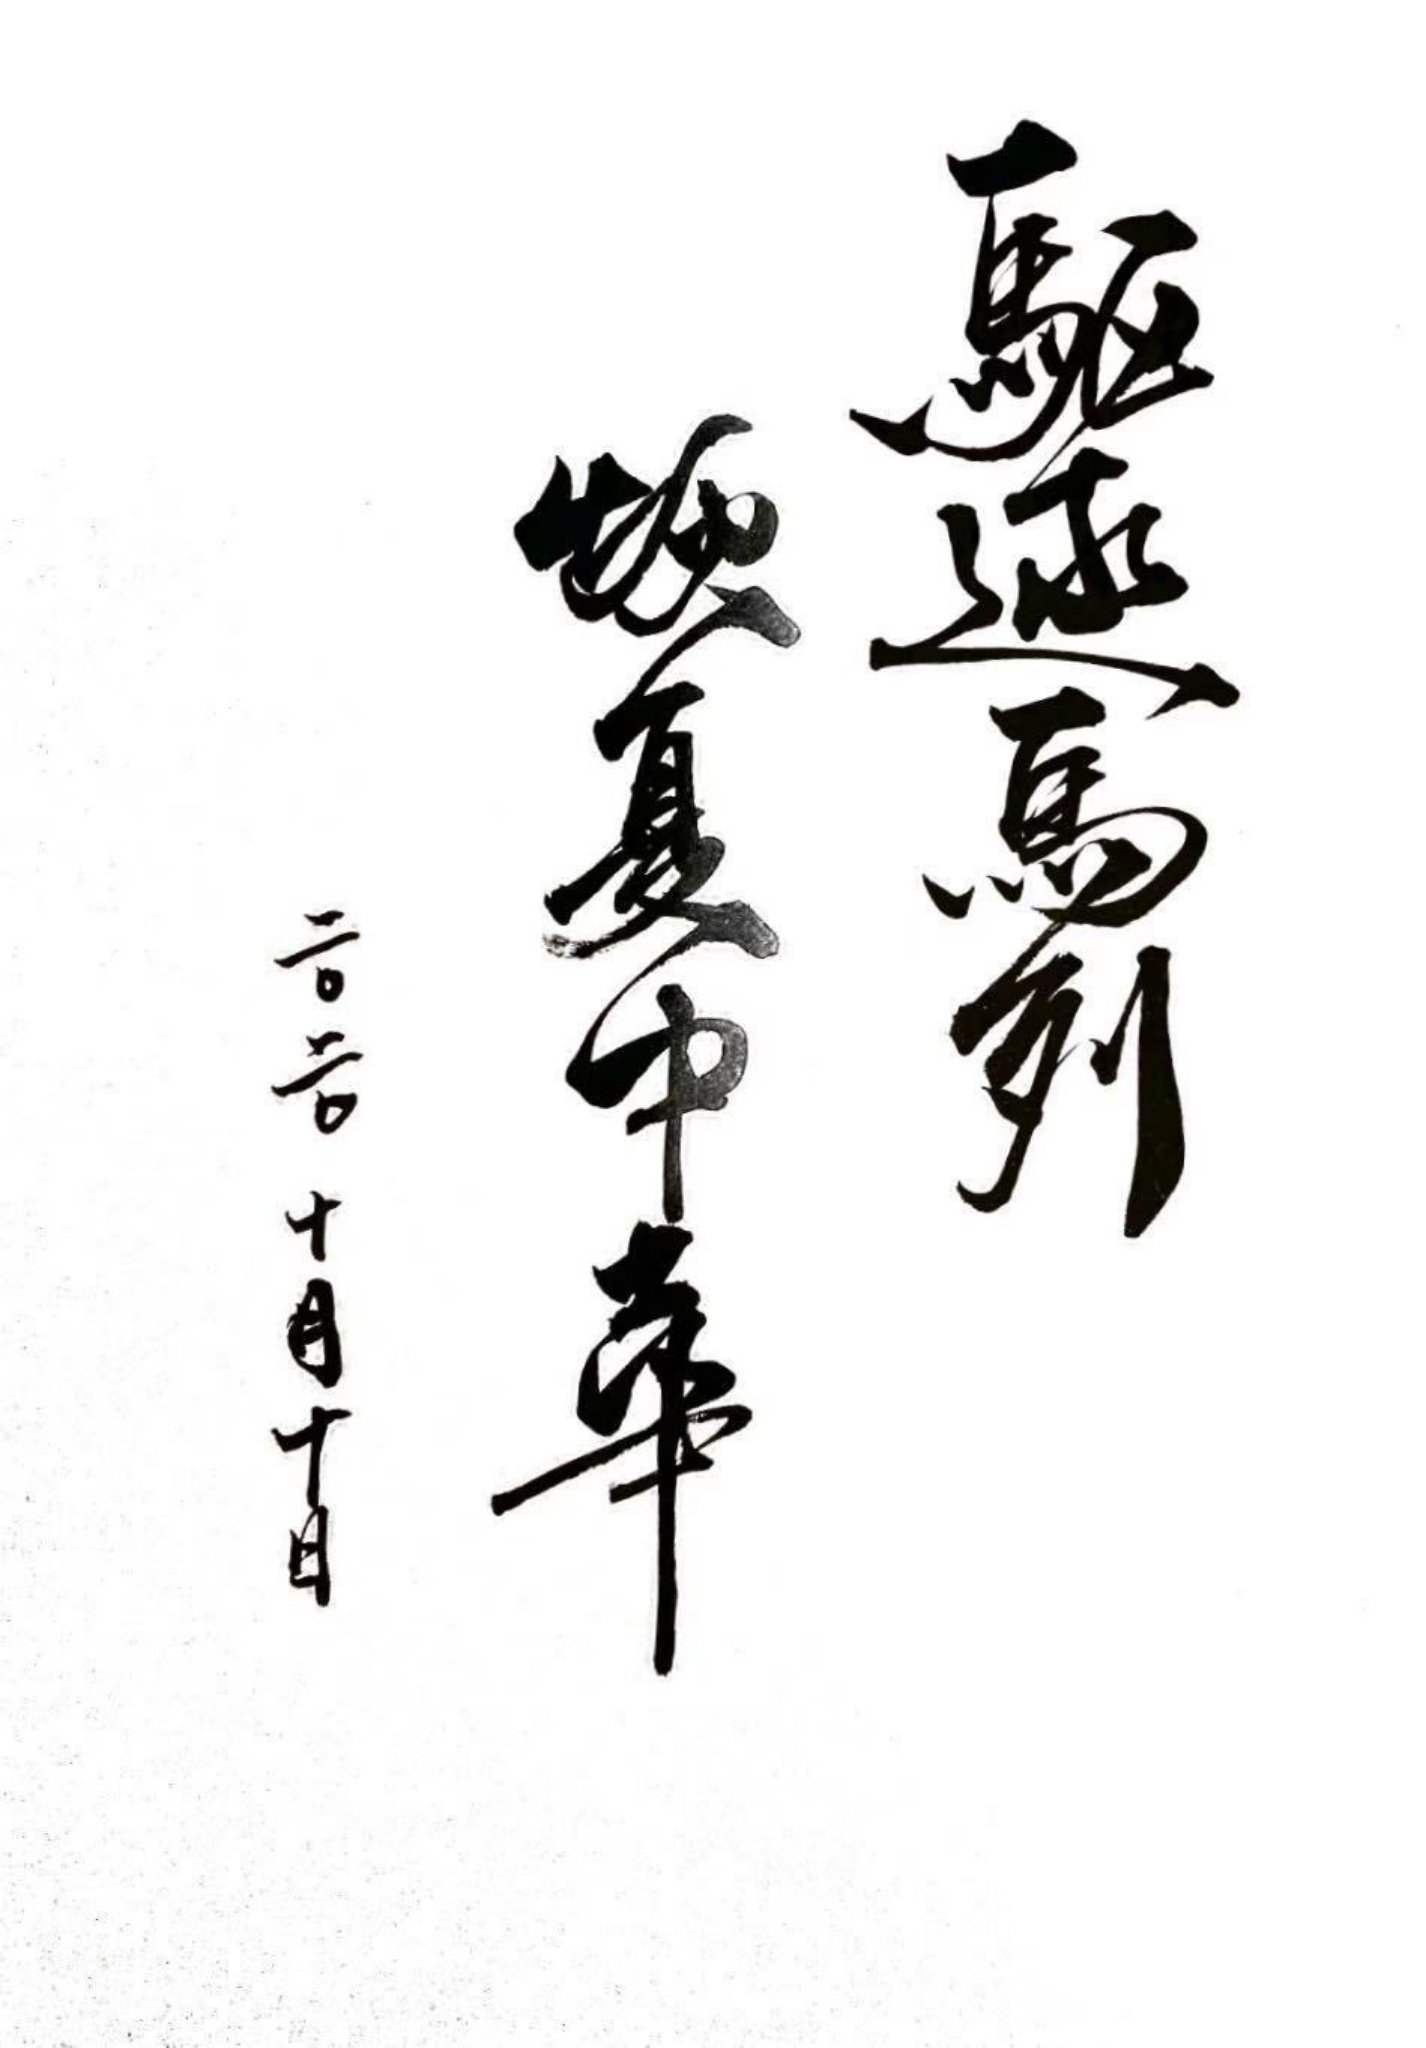 驅逐馬列
恢复中華
二〇二〇 十月十日